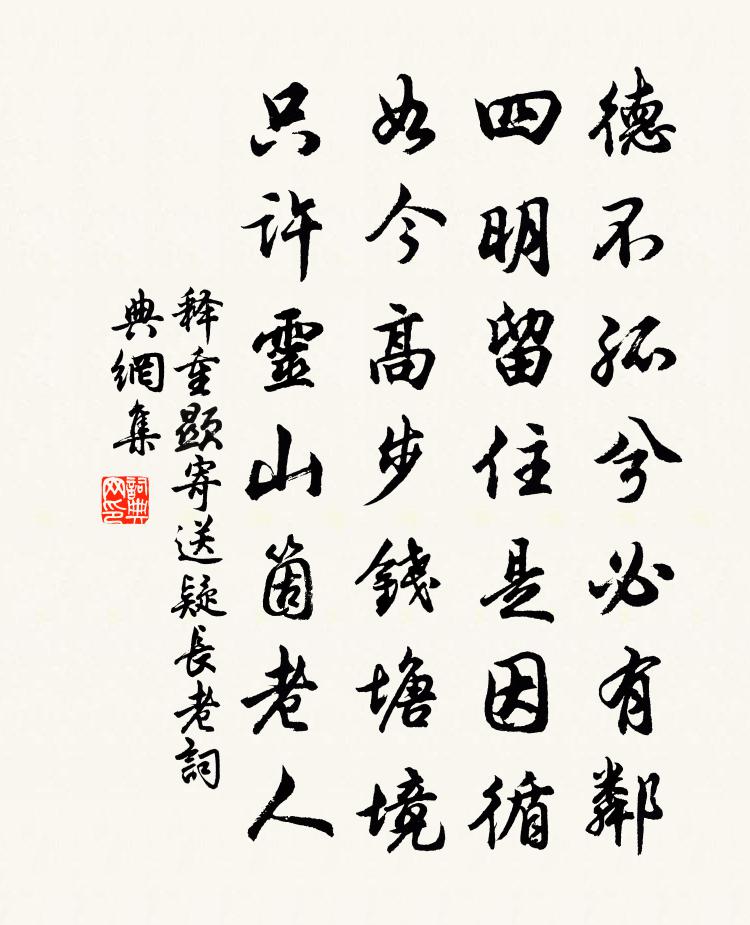 德不孤兮必有鄰
四明留住是因循
如今高步錢塘境
只許靈山箇老人
释重顯寄送疑長老詞
典網集
詞典网印